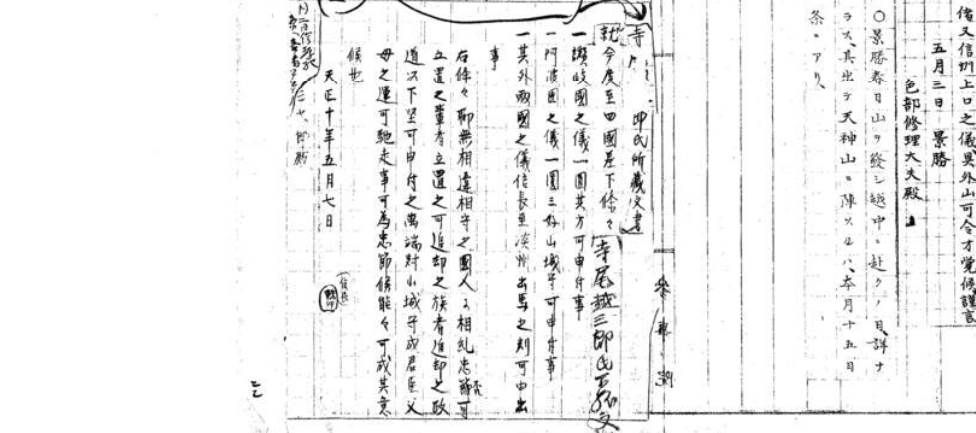 倍又信州上口之儀異外山可令才覚候謹言
五月三日 景勝
色部修理大夫殿
〇景勝春日山ヲ発シ越中ニ赴クノ日、詳ナ
ラス、其出テ天神山ニ陣スルハ、本月十五日
条ニアリ、
参謀調
寺尾越三郎氏所蔵文
印氏所蔵文書
就今度至四國差下条々
一讃岐國之儀一圓其方可申付事
一阿波國之儀一圓三好山城守可申付事
一其外両國之儀信長至淡州出馬之刻可申出
事
右条々聊無相違相守之國人等相糺忠否可
立置之輩者立置之可追却之族者追却之政
道以下堅可申付之萬端対山城守成君臣父
母之運可馳走事可為忠節候能々可成其意
候也
天正十年五月七日
(信長)
三七 殿